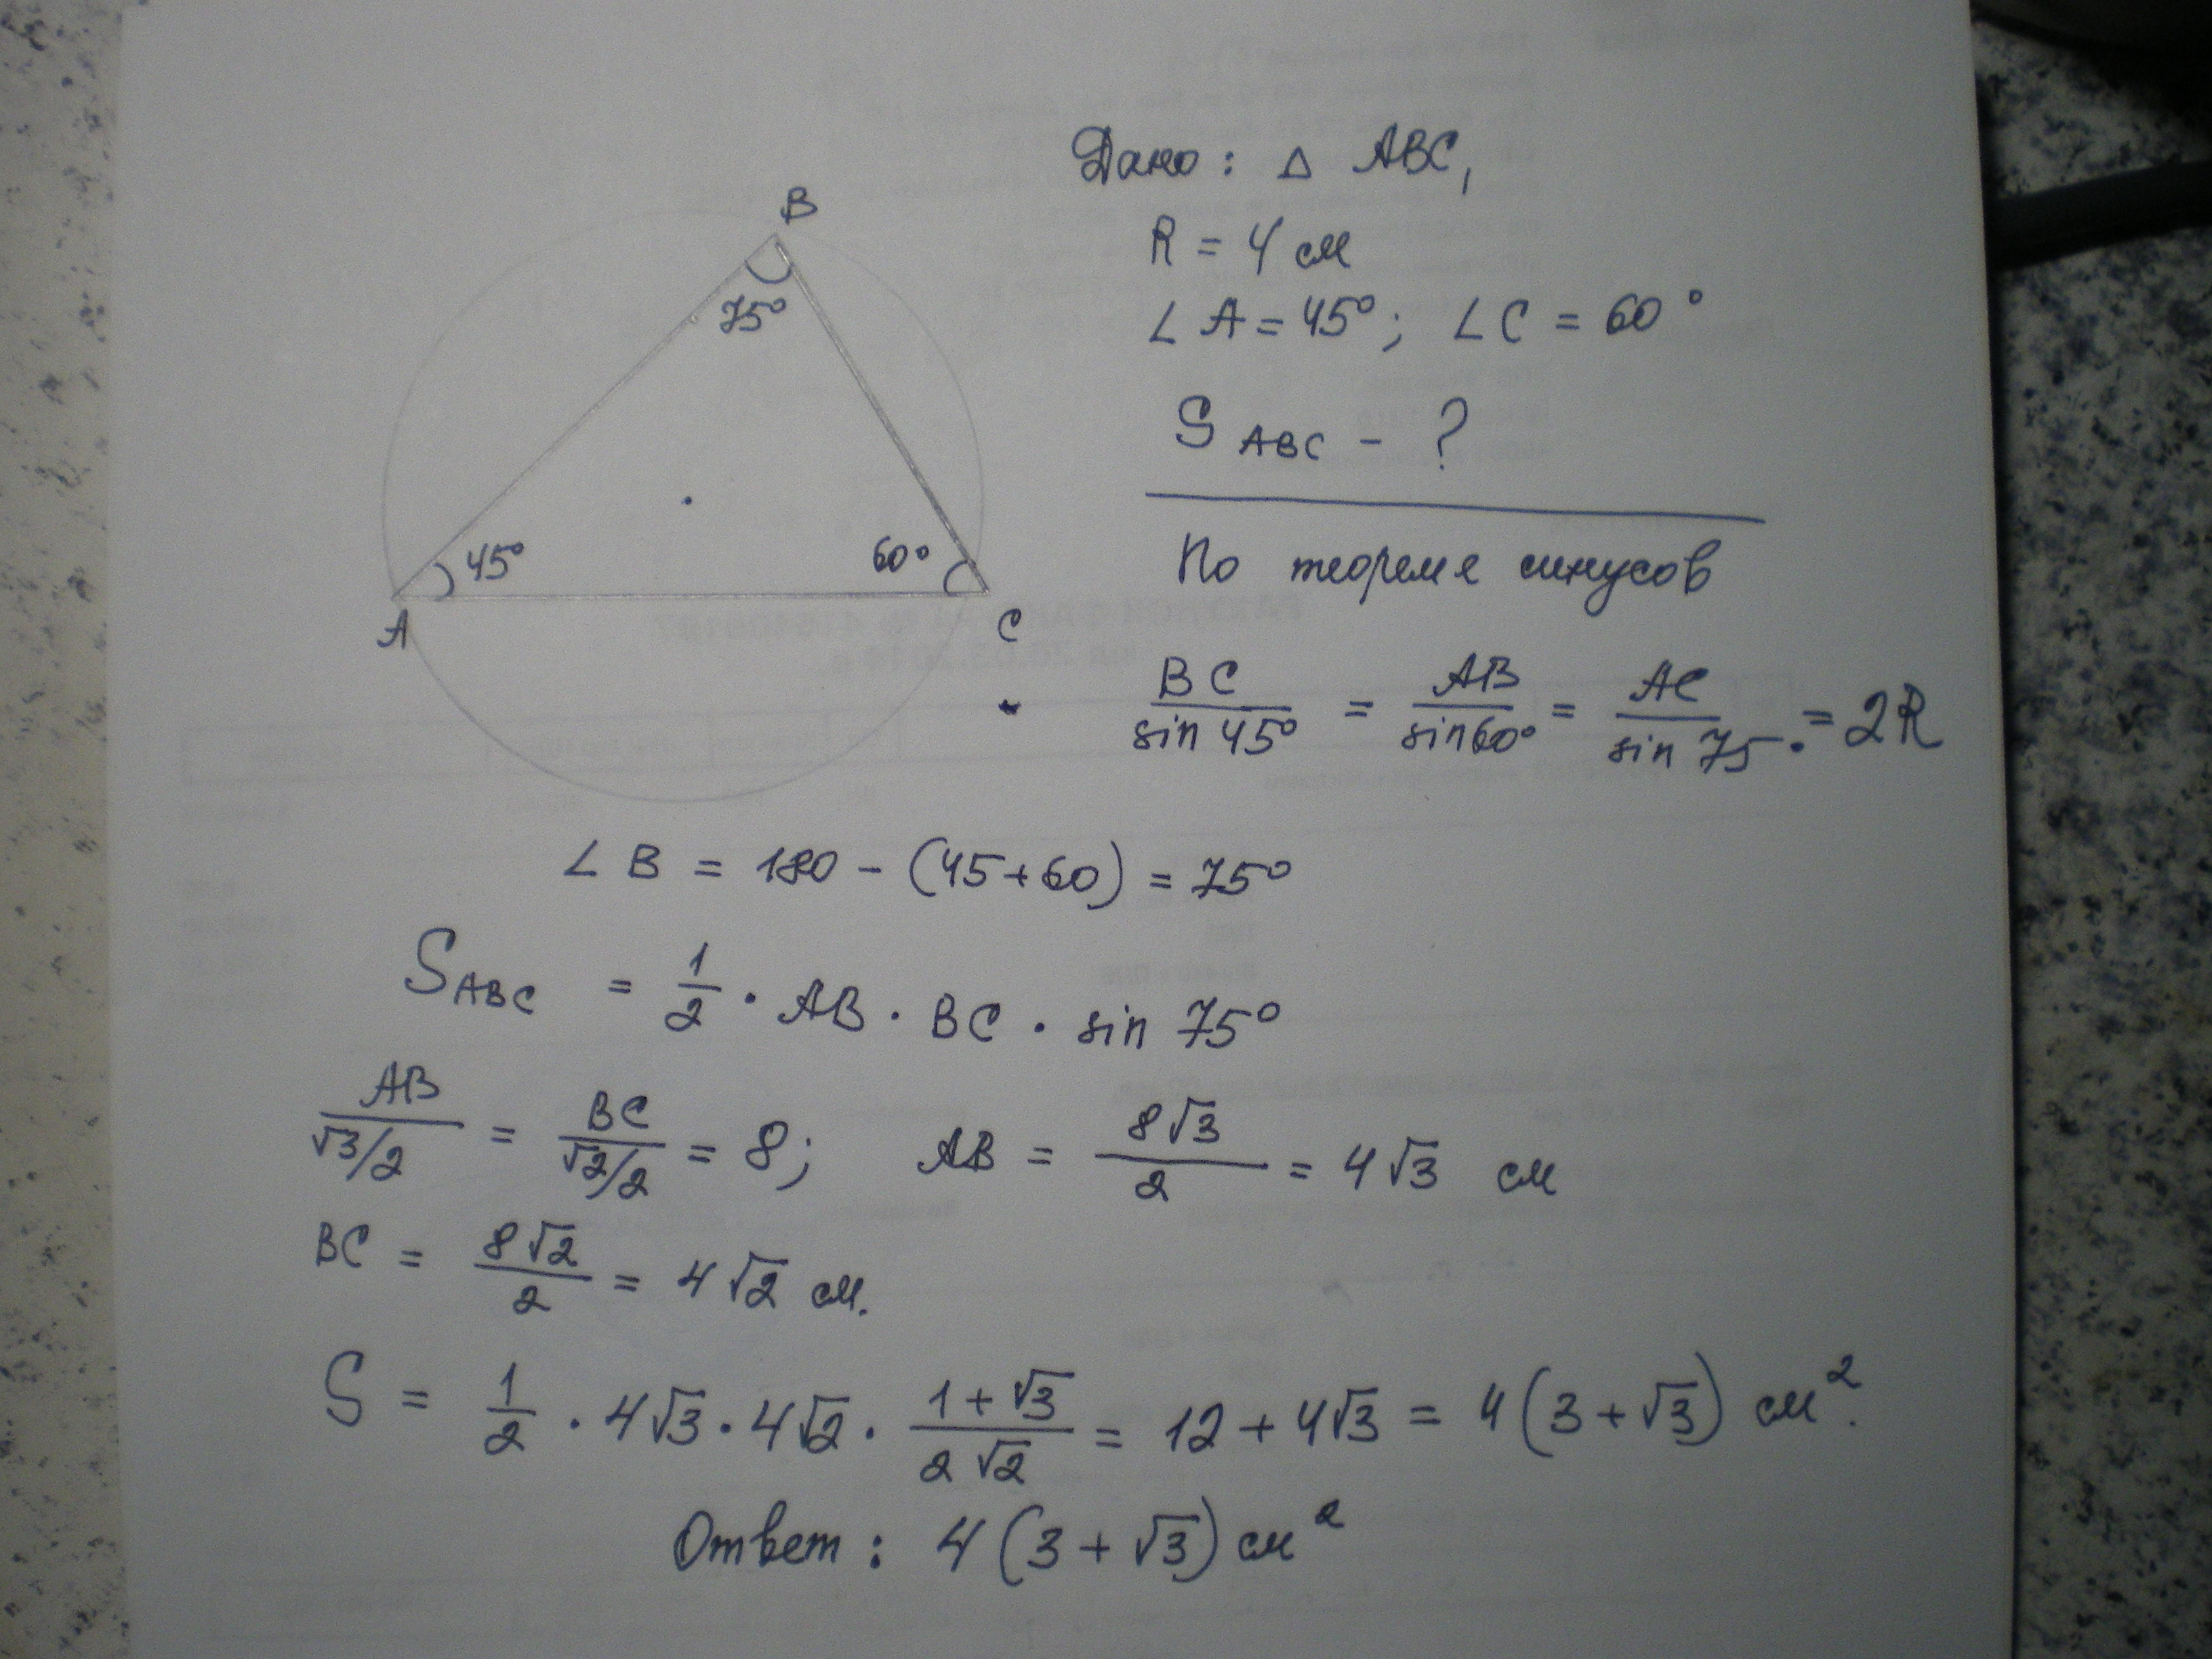 Дано: △ ABC,
R = 4 см
∠A = 45°; ∠C = 60°
S ABC - ?
По теореме синусов
BC/sin 45° = AB/sin 60° = AC/sin 75. = 2R
B
75°
45°
60°
A
C
∠B = 180 - (45+60) = 75°
S ABC = 1/2 · AB · BC · sin 75°
AB/(√3/2) = BC/(√2/2) = 8; AB = 8√3/2 = 4√3 см
BC = 8√2/2 = 4√2 см.
S = 1/2 · 4√3 · 4√2 · (1+√3)/(2√2) = 12 + 4√3 = 4(3+√3) см².
Ответ: 4(3+√3) см²